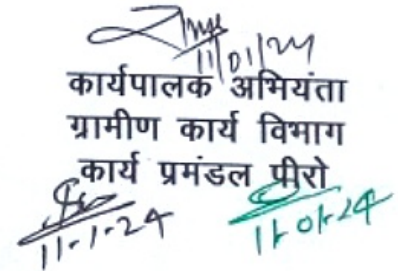 11/01/24
कार्यपालक अभियंता
ग्रामीण कार्य विभाग
कार्य प्रमंडल पीरो
11-1-24 11-01-24